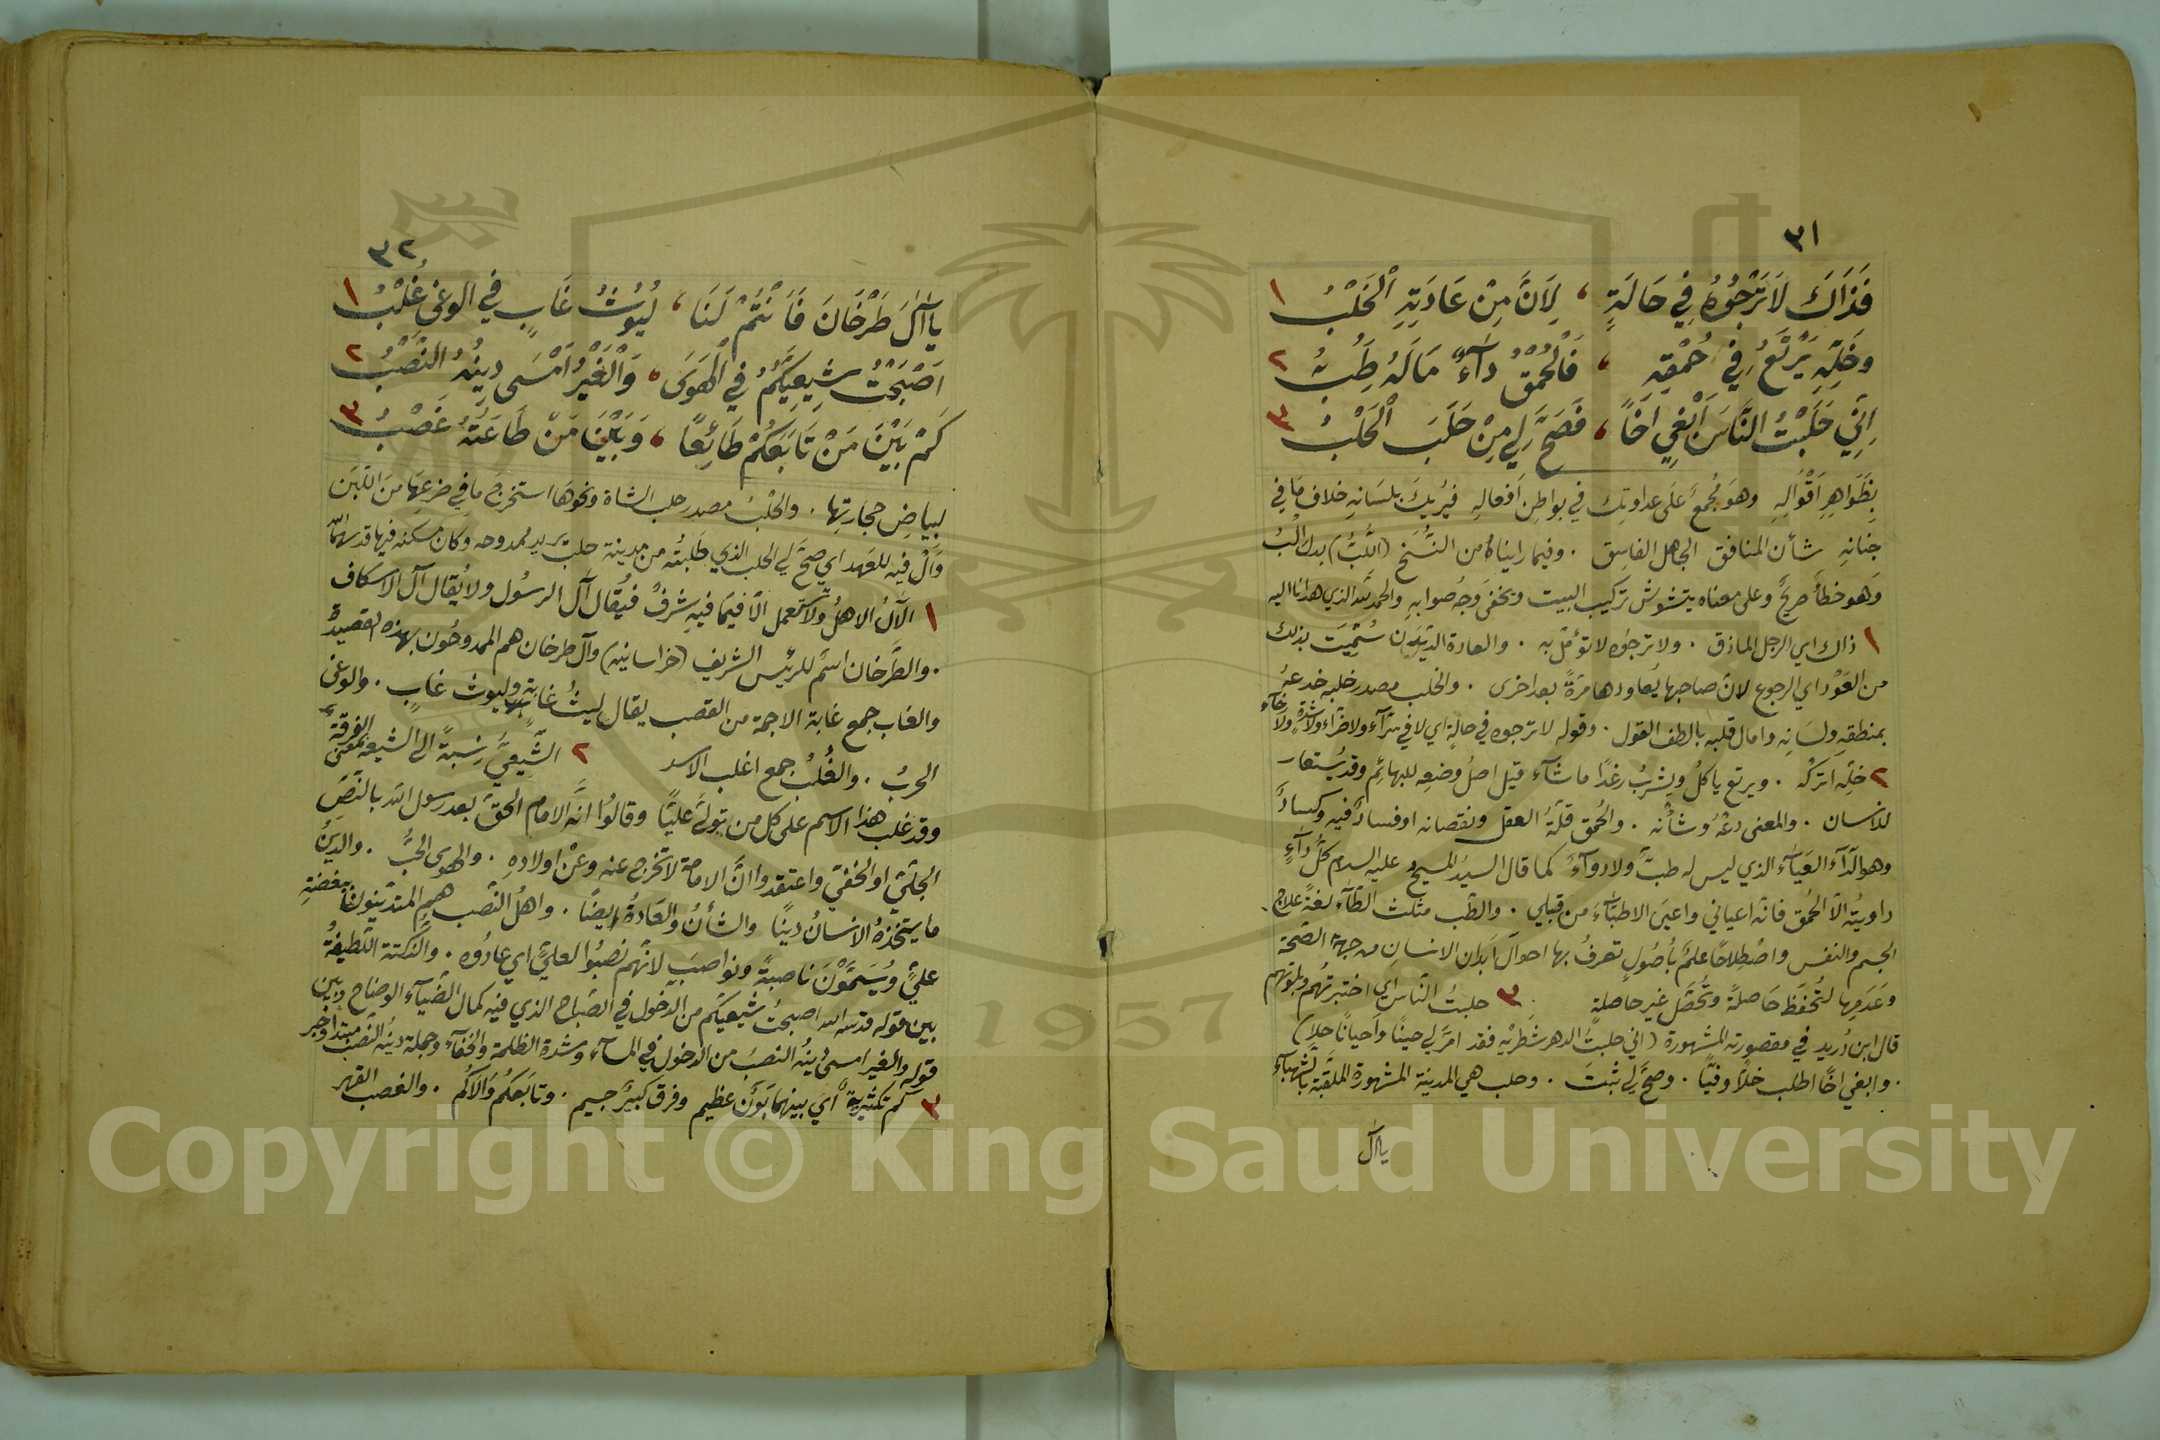 ٣١
فَذَاكَ لَا تَرْجُوهُ فِي حَالَةٍ ، لِأَنَّ مِنْ عَادَتِهِ الْخَلْبُ ١
وَخَلِّهِ يَرْتَعُ فِي حُمْقِهِ ، فَالْحُمْقُ دَآءٌ مَا لَهُ طِبُّ ٢
إِنِّي حَلَبْتُ النَّاسَ أَبْغِي أَخًا ، فَصَحَّ لِي مِنْ حَلَبَ الْحَلْبُ ٣
بِظَوَاهِرِ اَقْوَالِهِ وهوَ مُجمِعٌ عَلَى عداوتِكَ في بواطِنِ اَفعالِهِ فيُريكَ بلسَانِهِ خلاف مَا في
جِنانِهِ شأن المنافق الجاهل الفاسِق . وفيما رايناهُ من النُّسَخ (اللُّبُّ) بدل الخلبُ
وَهو خطأٌ صريحٌ وعلى معناه يتشوش تركيب البيت ويخفى وَجهُ صوابهِ والحمد لله الذي هدانا اليه
١ ذاك اي الرجل الماذق . ولا ترجُوه لا تؤمّل به . والعادة الدَّيدَن سُمّيَت بذلك
من العَوْد اي الرجوع لانّ صاحبها يُعاودها مَرّةً بعد اخرى . والخلب مصدر خلبه خدعهُ
بمنطقهِ ولسَانِهِ وامال قلبه بالطف القول . وقوله لا ترجوه في حالةٍ اي لا في سَرّآء ولا ضرّآء ولا شدةٍ ولا رخآءٍ
٢ خلِّه اتركْه . ويرتع ياكلُ ويشربُ رغدًا ما شآء قيل اصلُ وضعهِ للبهائم وقد يُستعار
للانسان . والمعنى دعْهُ وشأنه . والحُمق قلّةُ العقل ونقصانه او فسادٌ فيه وكسادٌ
وهو الدّآء العَيَآء الذي ليس له طبٌّ ولا دوآءٌ كما قال السيدُ المسيح عليه السلام كلُّ دآءٍ
داويتُه الّا الحُمق فانّه اعياني واعيَى الاطبّآء من قبلي . والطّب مثلث الطآء لغةً علاج
الجسم والنفس واصْطِلاحًا علمٌ بأُصُولٍ تعرفُ بها احوال ابدان الانسان من جهة الصّحّة
وعَدَمها لتُحفَظَ حَاصلةً وتُحَصَّل غير حاصلةٍ . ٣ حلبتُ الناسَ اي اختبرتُهم وبلوتهم
قال ابن دُريد في مقصورته المشهورة (اني حلبتُ الدهر شَطريْهِ فقد امَرَّ لي حينًا وَاحيانًا حلا)
. وابغي اخًا اطلب خلًّا وفيًّا . وصحَّ لي ثبتَ . وحلب هي المدينة المشهورة الملقَّبة بالشهبآء
يا آل
٣٢
يا آلَ طَرْخَانَ فَأَنْتُمْ لَنَا ، لُيُوثُ غَابٍ فِي الوغى غُلْبُ ١
أَصْبَحْتُ شِيعِيَّكُمُ فِي الْهَوَى ، وَالْغَيْرُ أَمْسَى دِينُهُ النَّصْبُ ٢
كَمْ بَيْنَ مَنْ تَابَعَكُمْ طَائِعًا ، وَبَيْنَ مَنْ طَاعَتُهُ غَصْبُ ٣
لبياضِ حجارتِها . والحَلْبُ مصدر حلب الشاة ونحوها استخرج ما في ضرعِهَا منَ اللّبَن
وَالْ فيهِ للعَهد اي صَحَّ لي الحلب الذي طلبتُه من مدينة حلب يريد ممدوحه وكان مسكنه فيها قدسهما الله
١ الآلُ الاهلُ ولا يُستعمل الّا فيما فيهِ شرفٌ فيُقال آل الرسُول ولا يُقال آل الاسكاف
. والطَّرخان اسمٌ للرئيس الشريف (خراسانية) وآل طرخان هم الممدوحُون بهذه القصيدة
والغاب جمع غابة الاجمة من القصب يقال ليثُ غابةٍ وليوث غابٍ . والوغى
الحربُ . والغُلْبُ جمع اغلب الاسد ٢ الشّيعيّ نِسبةً الى الشيعة بمعنى الفرقة
وقد غلب هذا الاسم على كل من يتولّى عليًّا وقالوُا انّه الامام الحقّ بعد رسول الله بالنّصّ
الجليّ او الخفيّ واعتقدوا انَّ الامامة لا تخرج عنه وعَنْ اولادِهِ . والهوى الحبُّ . والدّينُ
ما يتخذهُ الانسانُ دينًا والشأنُ والعَادةُ ايضًا . واهلُ النّصب هم المتديّنونَ ببغضةِ
عليٍّ ويُسَمَّوْنَ ناصبةً ونواصِبَ لانّهم نصبُوا لعليٍّ اي عادُوه . والنكتة اللّطيفةُ
بين قوله قدّسه الله اصبحتُ شيعيّكم من الدخول في الصّباح الذي فيه كمال الضيآء الوضاح وبين
قوله والغير امسى دينُه النصبُ من الدخول في المسآء وشدة الظلمة والخفآء وجملة دينُه النصبُ مبتدا وخبر
٣ كم تكثيريةٌ اي بينهما بَونٌ عظيم وفرق كبيرٌ جسيم . وتابَعكُم والَاكُم . والغصب القهر
1957
Copyright © King Saud University